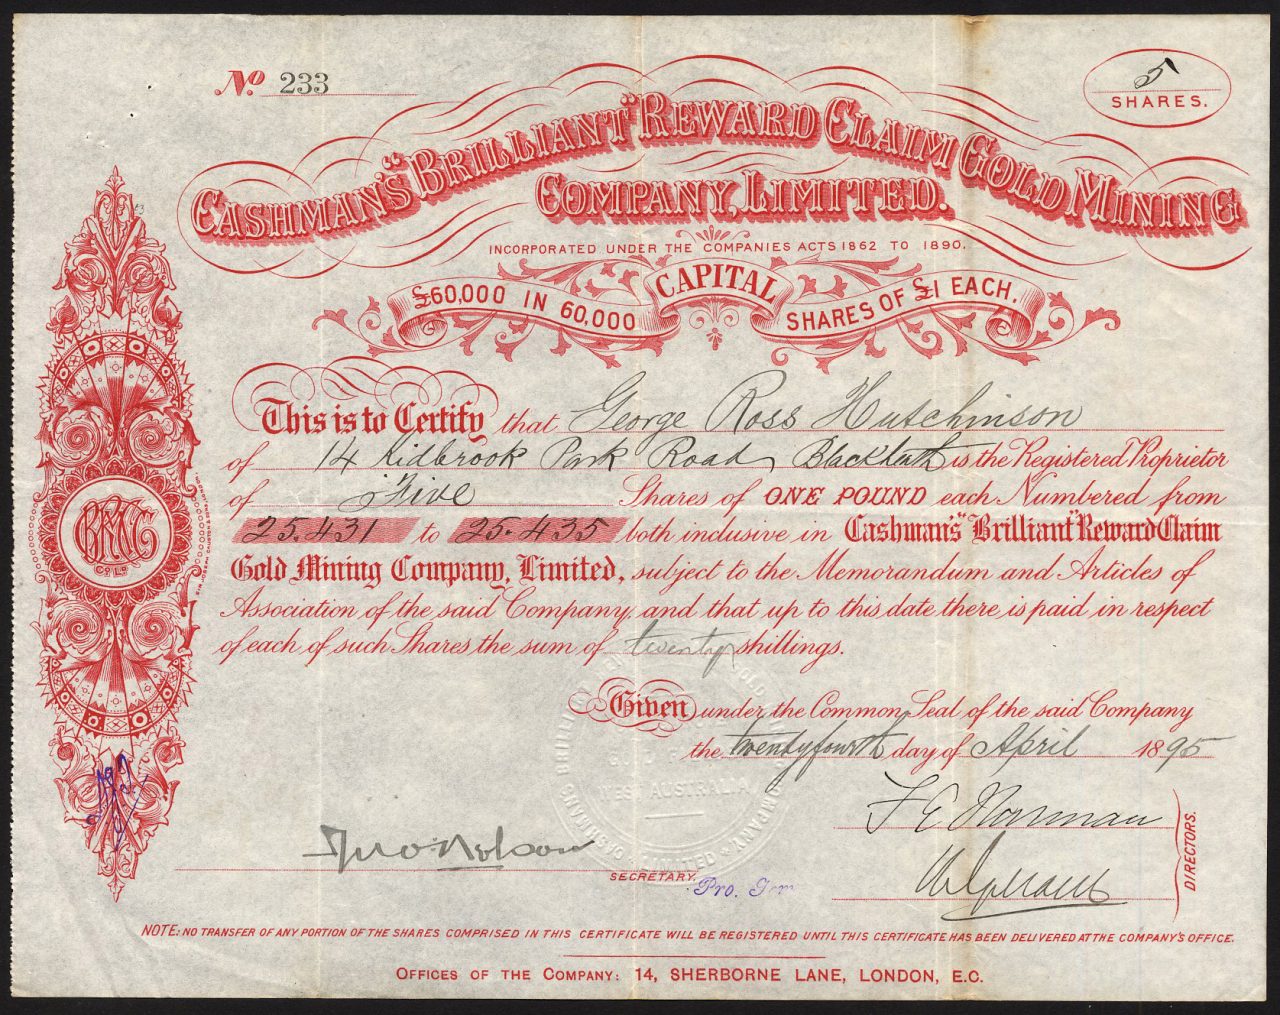 No. 233
5
SHARES.
CASHMAN'S "BRILLIANT" REWARD CLAIM GOLD MINING
COMPANY, LIMITED.
INCORPORATED UNDER THE COMPANIES ACTS 1862 TO 1890.
CAPITAL
£60,000 IN 60,000 SHARES OF £1 EACH.
This is to Certify that George Ross Hutchinson
of 14 Kidbrook Park Road, Blackheath is the Registered Proprietor
of Five Shares of ONE POUND each Numbered from
25.431 to 25.435 both inclusive in Cashman's "Brilliant" Reward Claim
Gold Mining Company, Limited, subject to the Memorandum and Articles of
Association of the said Company, and that up to this date there is paid in respect
of each of such Shares the sum of twenty shillings.
Given under the Common Seal of the said Company
the twentyfourth day of April 1895
WEST AUSTRALIA
LIMITED
F E Norman
Jno Nelson
SECRETARY.
Pro. Tem
DIRECTORS.
NOTE: NO TRANSFER OF ANY PORTION OF THE SHARES COMPRISED IN THIS CERTIFICATE WILL BE REGISTERED UNTIL THIS CERTIFICATE HAS BEEN DELIVERED AT THE COMPANY'S OFFICE.
OFFICES OF THE COMPANY: 14, SHERBORNE LANE, LONDON, E.C.